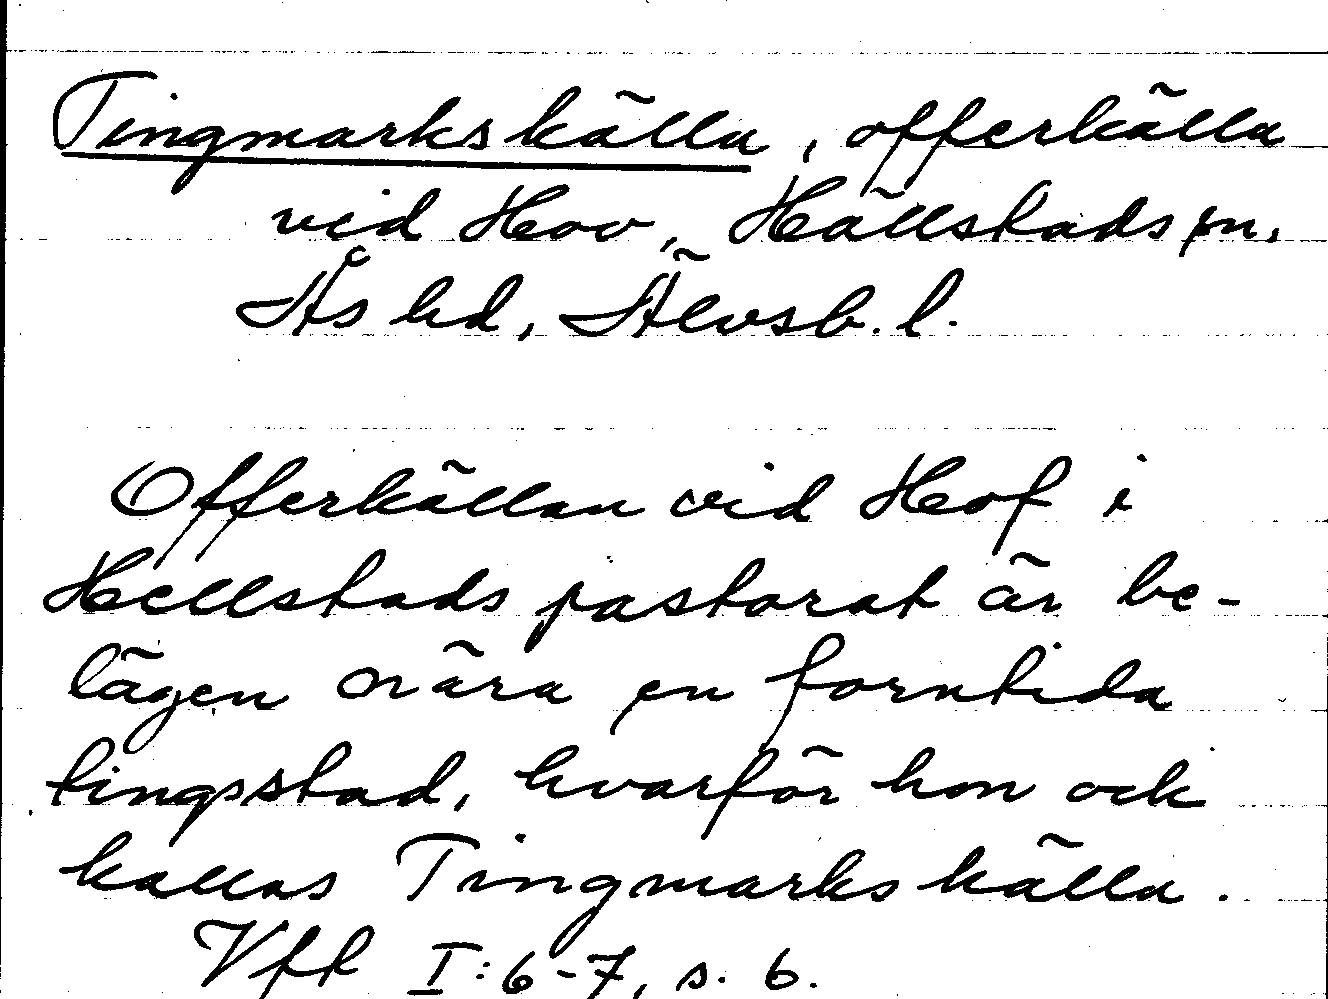 Tingmarkskälla, offerkälla
vid Hov, Hällstads sn,
Ås hd, Älvsb. l.
Offerkällan vid Hof i
Hellstads pastorat är be-
lägen nära en forntida
tingsstad, hvarför hon ock
kallas Tingmarkskälla.
Vff I:6-7, s. 6.